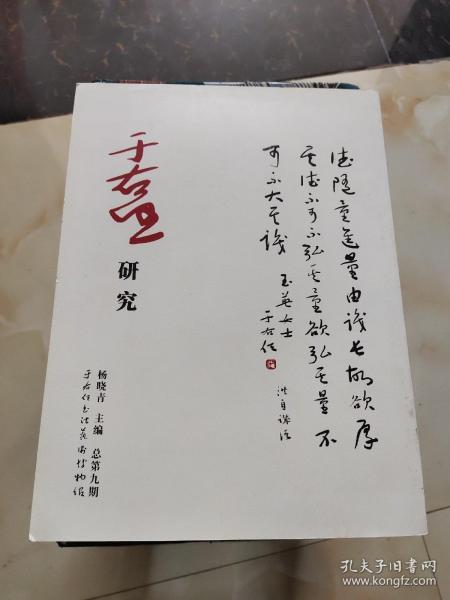 于右任
研究
德隨量進量由識長故欲厚
其德不可不弘其量欲弘其量不
可不大其識
玉英女士
于右任
洪自誠語
杨晓青 主编 总第九期
于右任书法艺术博物馆
孔夫子旧书网
www.kongfz.com